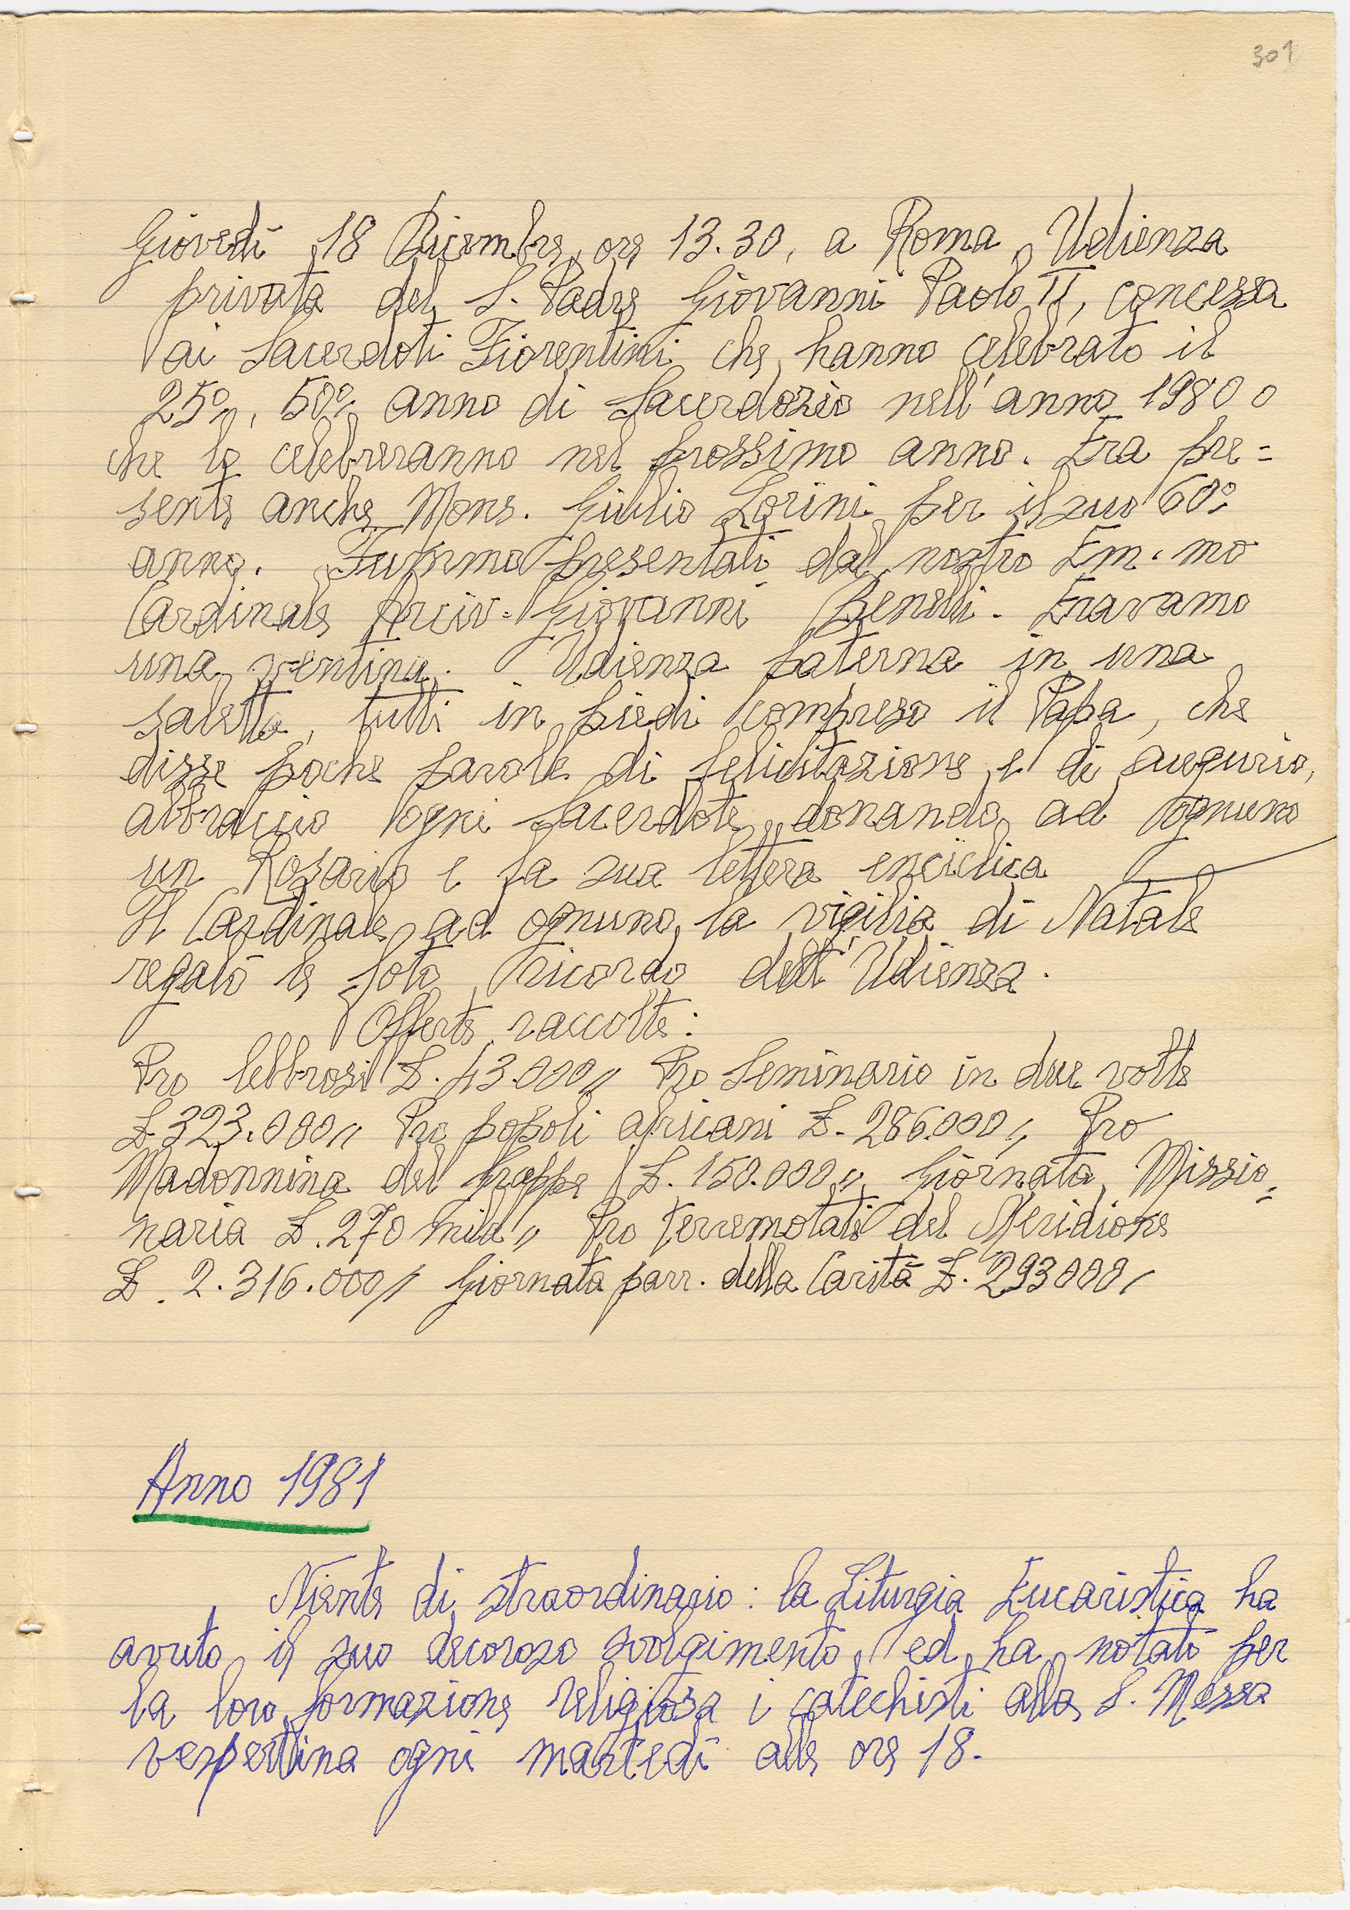 301
Giovedì 18 Dicembre, ore 13.30, a Roma, Udienza
privata del S. Padre Giovanni Paolo II, concessa
ai Sacerdoti Fiorentini che hanno celebrato il
25°, 50° anno di Sacerdozio nell'anno 1980 o
che lo celebreranno nel prossimo anno. Era pre=
sente anche Mons. Giulio Lorini per il suo 60°
anno. Fummo presentati dal nostro Em.mo
Cardinale Arciv. Giovanni Benelli. Eravamo
una ventina. Udienza paterna in una
saletta, tutti in piedi compreso il Papa, che
disse poche parole di felicitazione e di augurio,
abbracciò ogni Sacerdote donando ad ognuno
un Rosario e la sua lettera enciclica
Il Cardinale ad ognuno, la vigilia di Natale
regalò le foto ricordo dell'Udienza.
Offerte raccolte:
Pro lebbrosi £. 43.000,, Pro Seminario in due volte
£. 323.000,, Pro popoli africani £. 286.000,, Pro
Madonnina del Grappa £. 150.000,, Giornata Missio=
naria £. 270 mila,, Pro Terremotati del Meridione
£. 2.316.000,, Giornata parr. della Carità £. 293000,
Anno 1981
Niente di straordinario: la Liturgia Eucaristica ha
avuto il suo decoroso svolgimento, ed ha notato per
la loro formazione religiosa i catechisti alla S. Messa
vespertina ogni martedì alle ore 18.